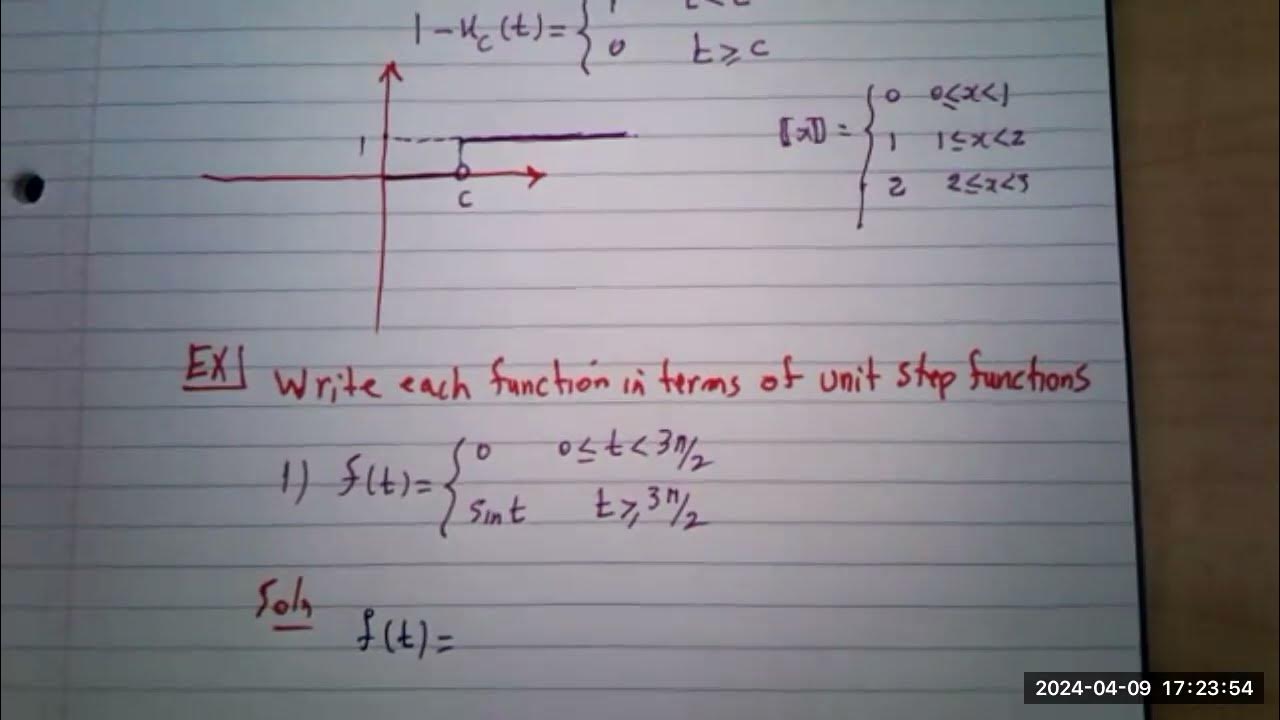 1 - u_c(t) = { 1 t < c
0 t ≥ c
1
c
[[x]] = { 0 0≤x<1
1 1≤x<2
2 2≤x<3
EX1 Write each function in terms of unit step functions
1) f(t) = { 0 0 ≤ t < 3π/2
sin t t ≥ 3π/2
Soln f(t) =
2024-04-09 17:23:54